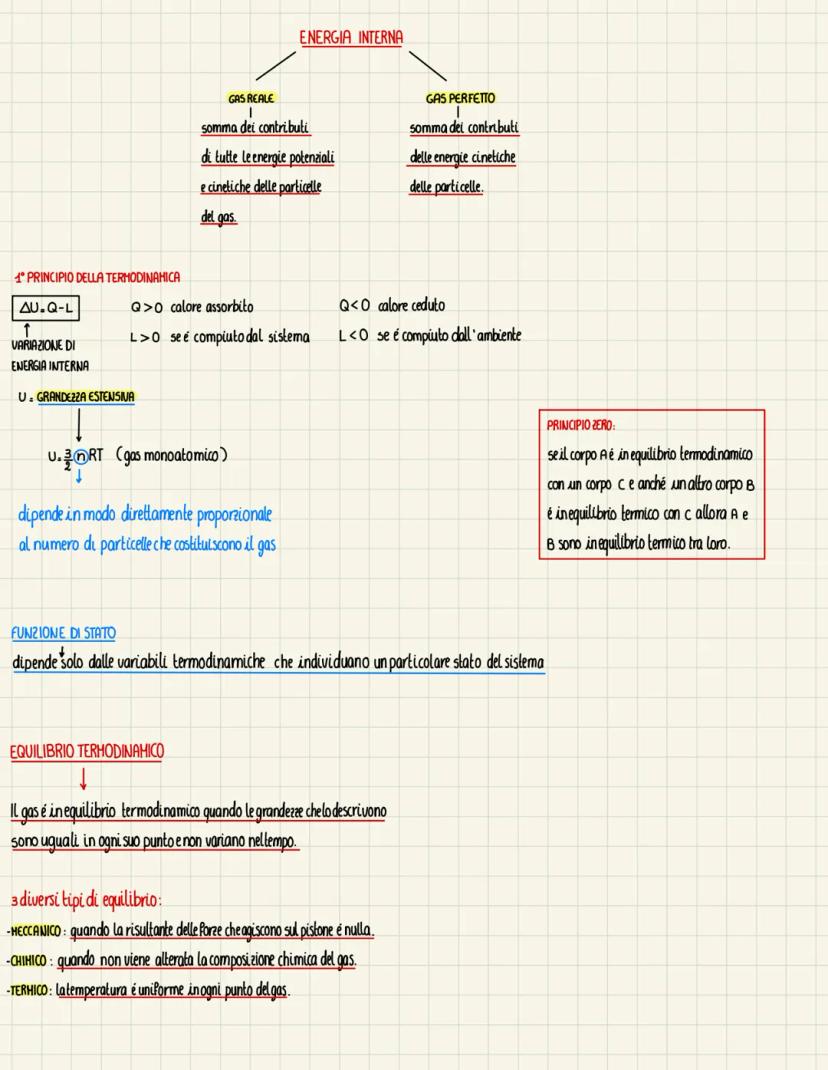 ENERGIA INTERNA
GAS REALE
somma dei contributi
di tutte le energie potenziali
e cinetiche delle particelle
del gas.
GAS PERFETTO
somma dei contributi
delle energie cinetiche
delle particelle.
1° PRINCIPIO DELLA TERMODINAMICA
ΔU = Q-L
Q>0 calore assorbito
Q<0 calore ceduto
L>0 se é compiuto dal sistema
L<0 se é compiuto dall'ambiente
VARIAZIONE DI
ENERGIA INTERNA
U = GRANDEZZA ESTENSIVA
U = 3/2 nRT (gas monoatomico)
dipende in modo direttamente proporzionale
al numero di particelle che costituiscono il gas
PRINCIPIO ZERO:
se il corpo A é in equilibrio termodinamico
con un corpo C e anché un altro corpo B
é in equilibrio termico con C allora A e
B sono in equilibrio termico tra loro.
FUNZIONE DI STATO
dipende solo dalle variabili termodinamiche che individuano un particolare stato del sistema
EQUILIBRIO TERMODINAMICO
Il gas é in equilibrio termodinamico quando le grandezze che lo descrivono
sono uguali in ogni suo punto e non variano nel tempo.
3 diversi tipi di equilibrio:
-MECCANICO: quando la risultante delle forze che agiscono sul pistone é nulla.
-CHIMICO: quando non viene alterata la composizione chimica del gas.
-TERMICO: la temperatura é uniforme in ogni punto del gas.